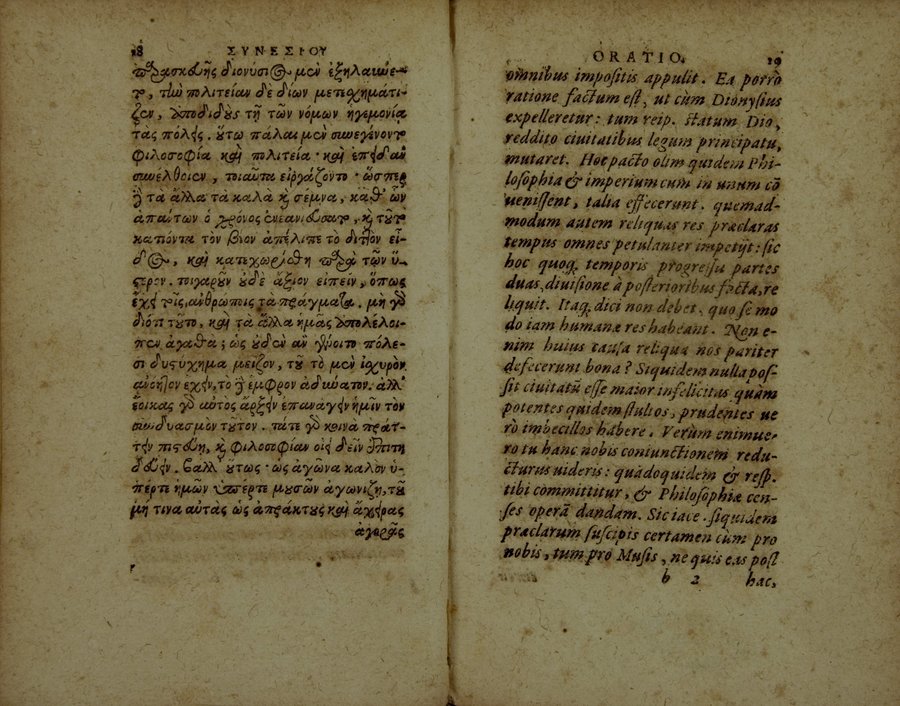 18
ΣΥΝΕΣΙΟΥ
παρασκευῆς διονύσιος μὲν ἐξηλαύνε-
το, τὴν πολιτείαν δὲ δίων μετεχημάτι-
ζεν, ἀποδιδοὺς τῇ τῶν νόμων ἡγεμονίᾳ
τὰς πόλεις. οὕτω πάλαι μὲν συνεγένοντο
φιλοσοφία καὶ πολιτεία· καὶ ἐπειδὰν
συνέλθοιεν, τοιαῦτα εἰργάζοντο· ὥσπερ
δὲ τὰ ἄλλα τὰ καλὰ καὶ σεμνὰ, καθ' ὧν
ἁπάντων ὁ χρόνος ἐνεανιεύσατο, καὶ
τὸν βίον ἀπέλιπε τὸ διττὸν εἶ-
δος, καὶ κατεχωρίσθη παρὰ τῶν ὕ-
στερον. τοιγαροῦν οὐδὲ ἄξιον εἰπεῖν, ὅπως
ἔχει τοῖς ἀνθρώποις τὰ πράγματα. μὴ γὰρ
διότι τοῦτο, καὶ τὰ ἄλλα ἡμᾶς ἀπολέλοι-
πεν ἀγαθά; ὡς οὐδὲν ἂν γένοιτο πόλε-
σι δυστύχημα μεῖζον, τοῦ τὸ μὲν ἰσχυρὸν
ἀνόητον ἔχειν, τὸ δὲ ἔμφρον ἀδύνατον. ἀλλ'
ἔοικας γὰρ αὐτὸς ἄρξειν ἐπανάγειν ἡμῖν τὸν
συνδυασμὸν τοῦτον. τά τε γὰρ κοινὰ πράτ-
τειν πιστεύῃ, καὶ φιλοσοφίαν οἴει δεῖν ἐπιτη
δεύειν. βάλλ' οὕτως· ὡς ἀγῶνα καλὸν ὑ-
πέρ τε ἡμῶν ὑπέρ τε μουσῶν ἀγωνίζῃ, τοῦ
μή τινα αὐτὰς ὡς ἀπράκτους καὶ ἀχείρας
ἀγορᾶς
ORATIO.
19
omnibus impositis appulit. Ea porrò
ratione factum est, ut cùm Dionysius
expelleretur: tum reip. statum Dio,
reddito ciuitatibus legum principatu,
mutaret. Hoc pacto olim quidem Phi-
losophia & imperium cum in unum cō
uenissent, talia effecerunt. quemad-
modum autem reliquas res præclaras
tempus omnes petulanter impetijt: sic
hoc quoq; temporis progressu partes
duas, diuisione à posterioribus facta, re
liquit. Itaq; dici non debet, quo se mo
do iam humanæ res habeant. Non e-
nim huius causa reliqua nos pariter
defecerunt bona? Siquidem nulla pos-
sit ciuitatū esse maior infelicitas quàm
potentes quidem stultos, prudentes ue
rò imbecillos habere. Verùm enimue-
ro tu hanc nobis coniunctionem redu-
cturus uideris: quādoquidem & resp.
tibi committitur, & Philosophiæ cen-
ses operā dandam. Sic iace. siquidem
præclarum suscipis certamen cùm pro
nobis, tum pro Musis, ne quis eas post
b 2
hac,